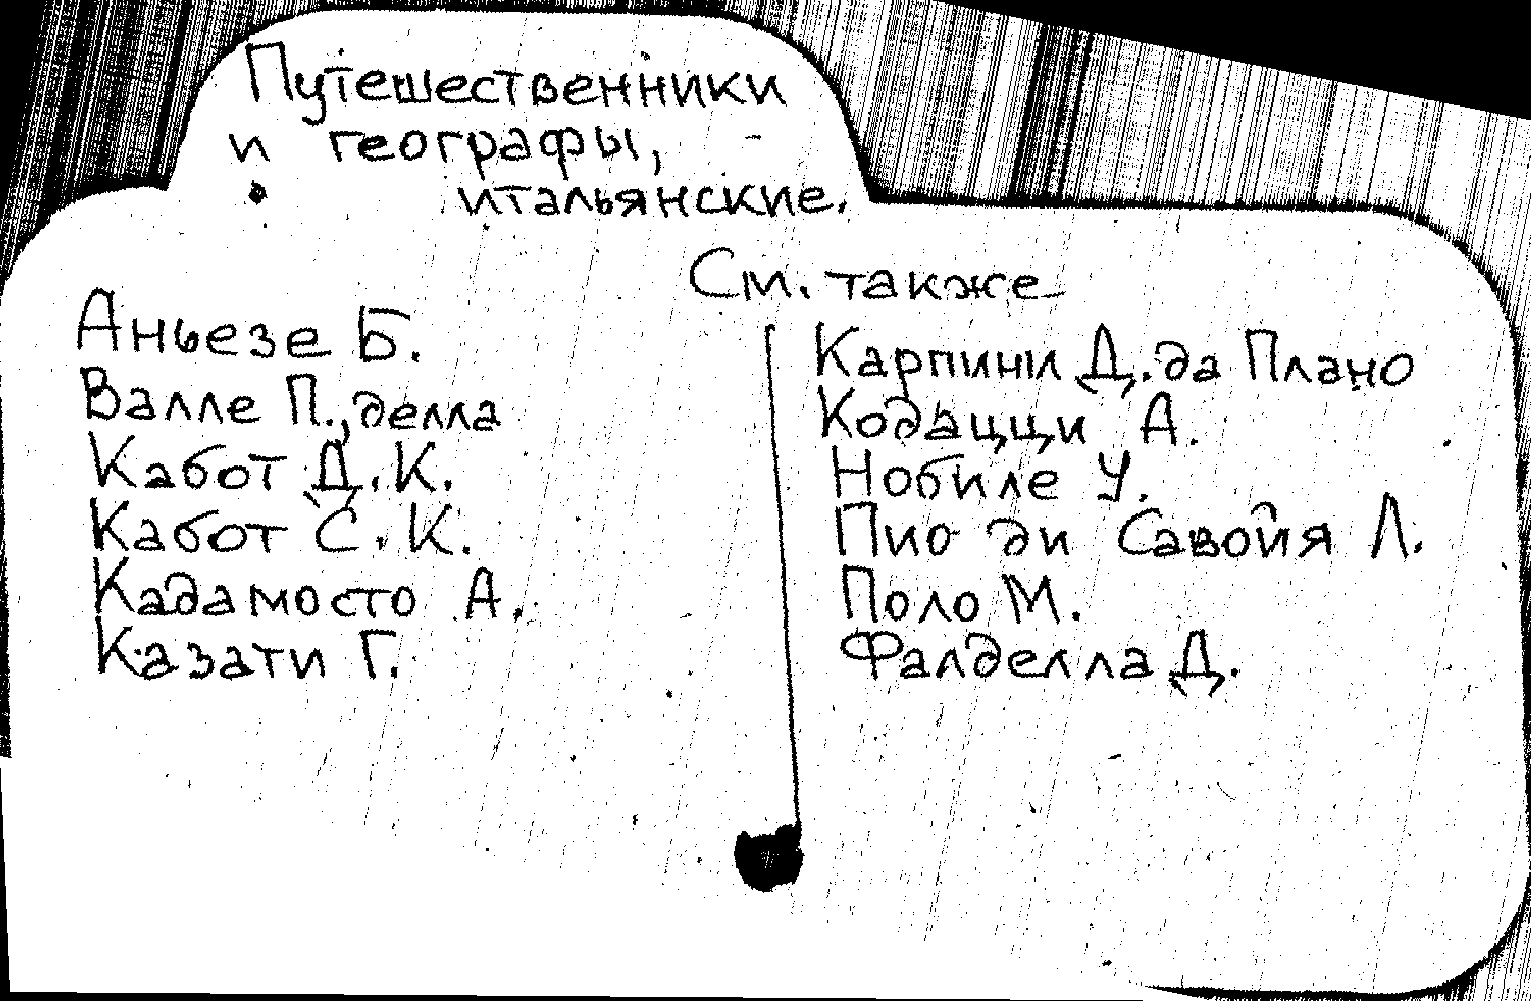 Путешественники
и географы,
итальянские.
См. также
Аньезе Б.
Валле П., делла
Кабот Д. К.
Кабот С. К.
Кадамосто А.
Казати Г.
Карпини Д. да Плано
Кодацци А.
Нобиле У.
Пио ди Савойя Л.
Поло М.
Фалделла Д.